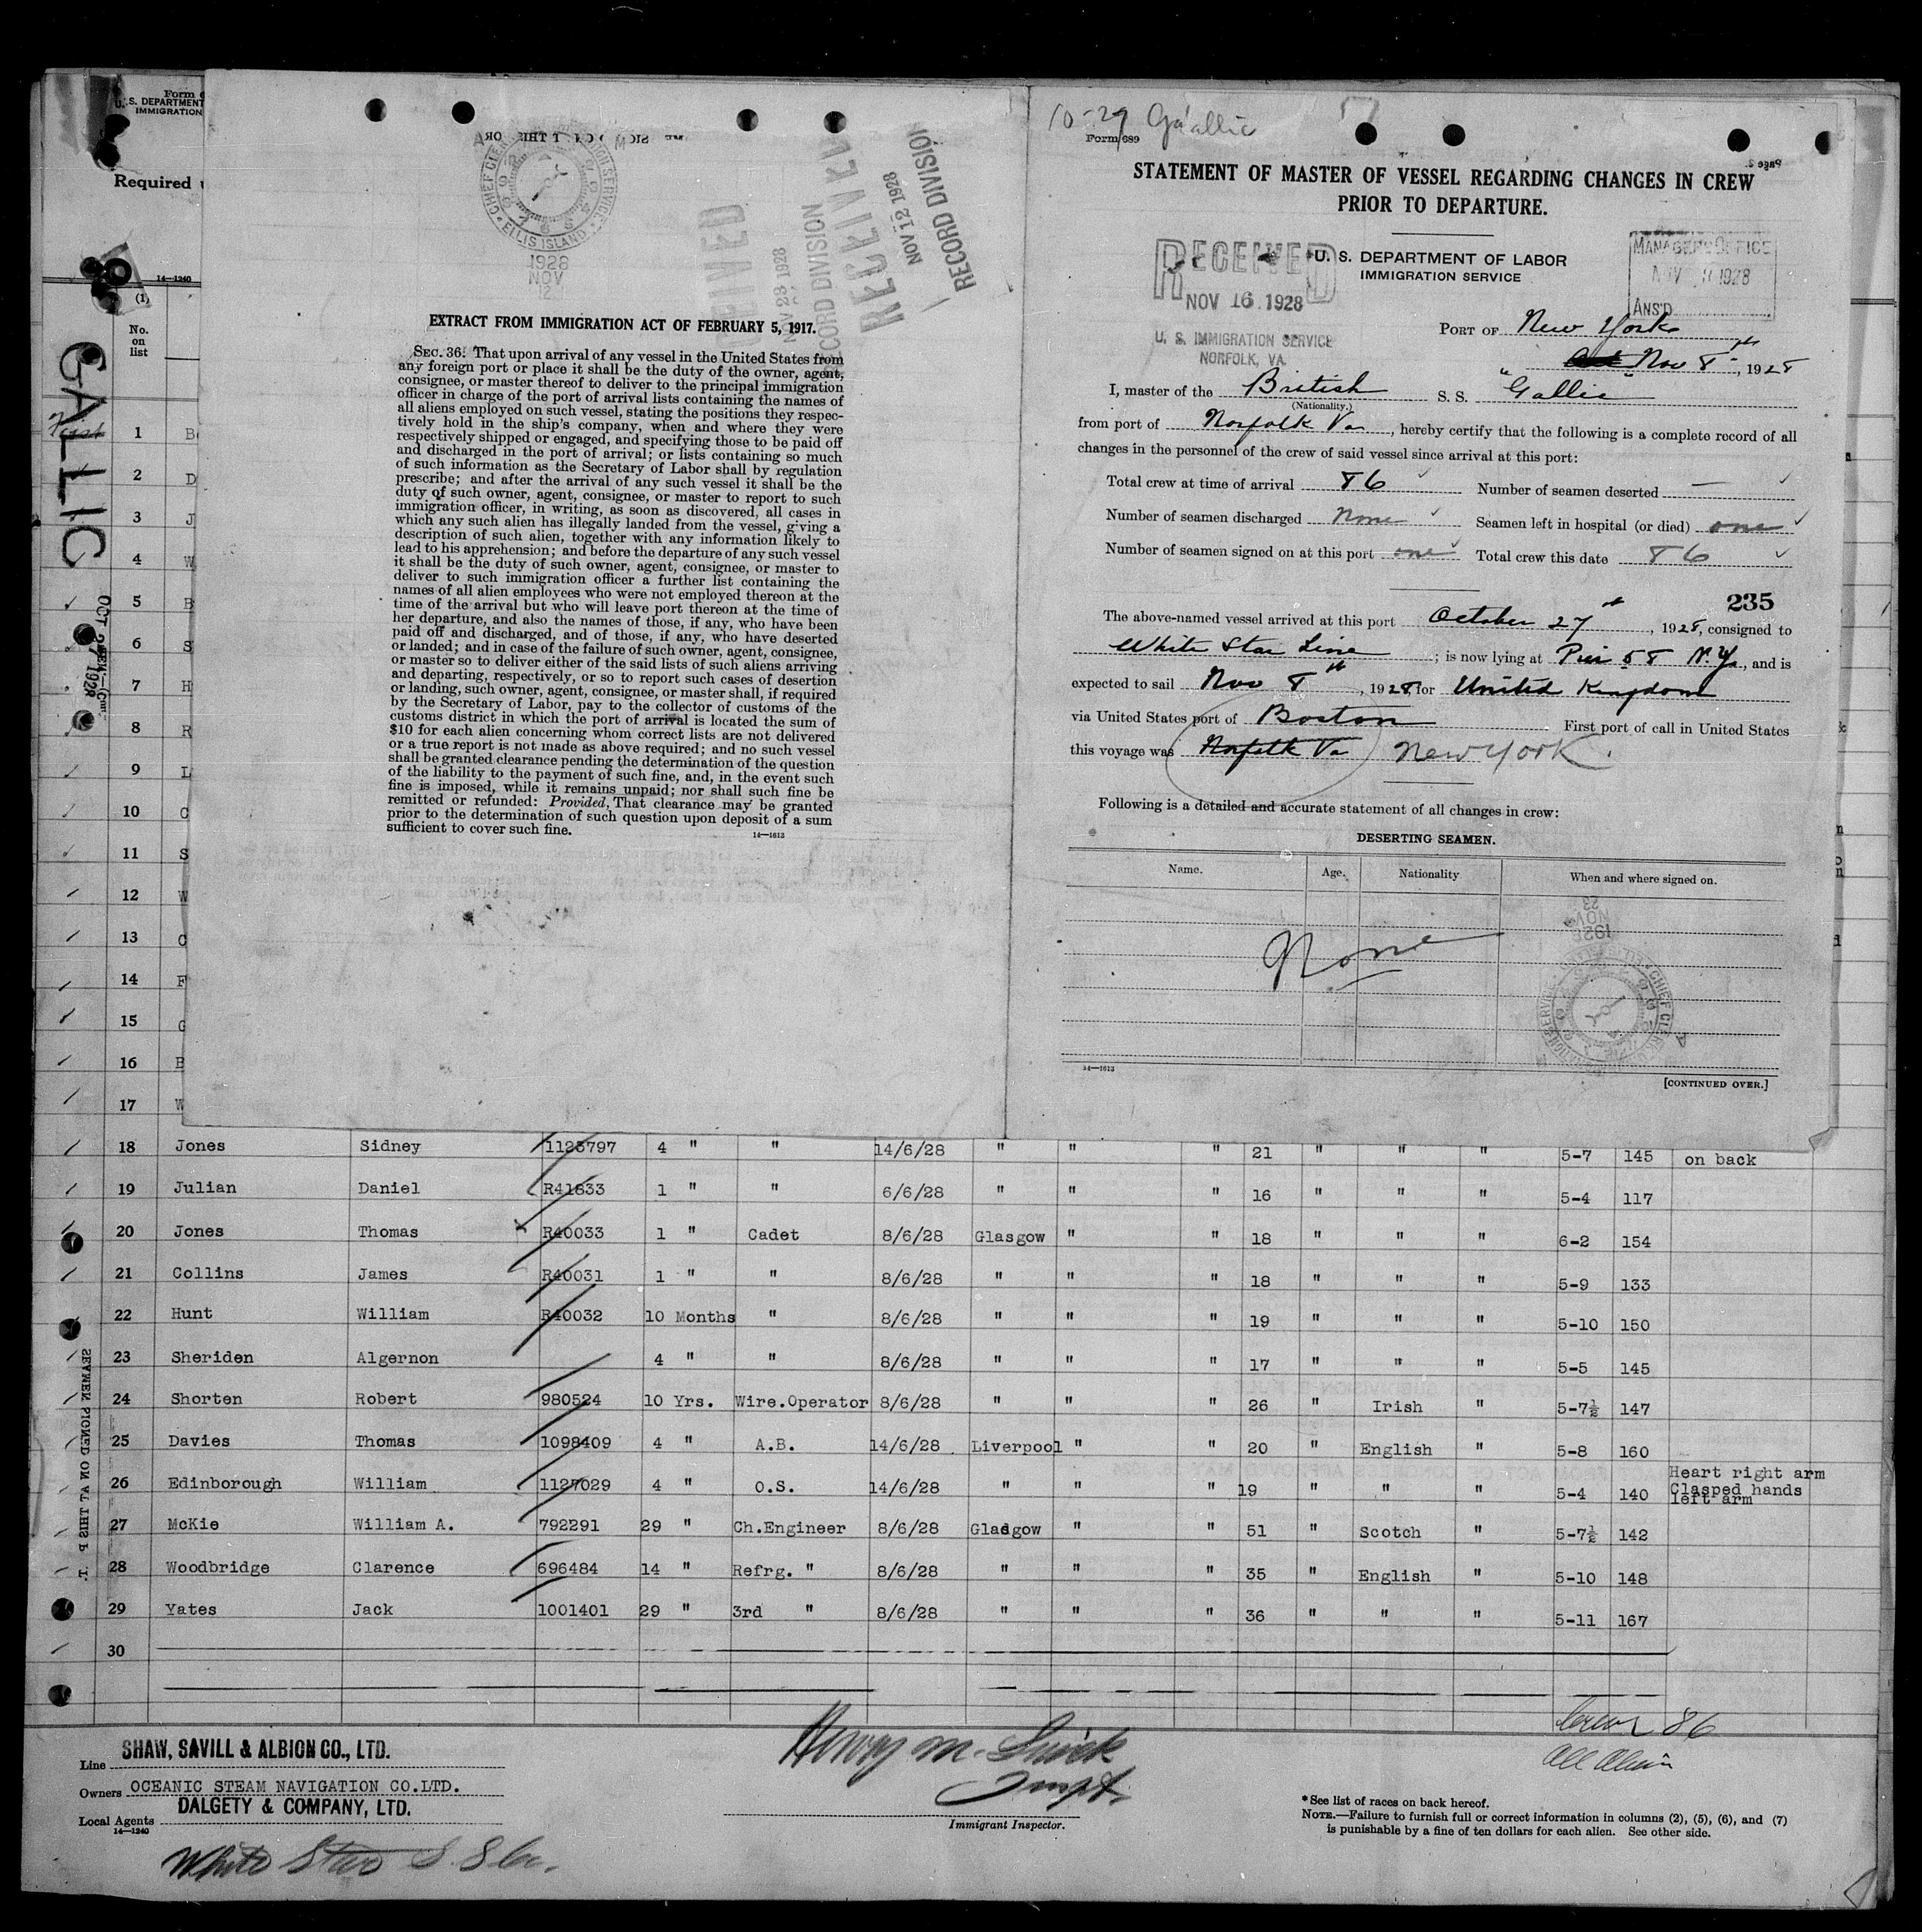 Form
U. S. DEPARTMENT
IMMIGRATION
Required
14—1240
(1)
No.
on
list
GALLIC
OCT 27 1928
1 B
2 D
3 J
4 W
5 B
6 S
7 H
8 R
9 L
10 C
11 S
12 W
13 C
14 F
15 G
16 B
17 W
CHIEF CLERK
ELLIS ISLAND
1928
NOV
12
RECEIVED
NOV 23 1928
RECORD DIVISION
RECEIVED
NOV 12 1928
RECORD DIVISION
EXTRACT FROM IMMIGRATION ACT OF FEBRUARY 5, 1917.
SEC. 36. That upon arrival of any vessel in the United States from
any foreign port or place it shall be the duty of the owner, agent,
consignee, or master thereof to deliver to the principal immigration
officer in charge of the port of arrival lists containing the names of
all aliens employed on such vessel, stating the positions they respec-
tively hold in the ship's company, when and where they were
respectively shipped or engaged, and specifying those to be paid off
and discharged in the port of arrival; or lists containing so much
of such information as the Secretary of Labor shall by regulation
prescribe; and after the arrival of any such vessel it shall be the
duty of such owner, agent, consignee, or master to report to such
immigration officer, in writing, as soon as discovered, all cases in
which any such alien has illegally landed from the vessel, giving a
description of such alien, together with any information likely to
lead to his apprehension; and before the departure of any such vessel
it shall be the duty of such owner, agent, consignee, or master to
deliver to such immigration officer a further list containing the
names of all alien employees who were not employed thereon at the
time of the arrival but who will leave port thereon at the time of
her departure, and also the names of those, if any, who have been
paid off and discharged, and of those, if any, who have deserted
or landed; and in case of the failure of such owner, agent, consignee,
or master so to deliver either of the said lists of such aliens arriving
and departing, respectively, or so to report such cases of desertion
or landing, such owner, agent, consignee, or master shall, if required
by the Secretary of Labor, pay to the collector of customs of the
customs district in which the port of arrival is located the sum of
$10 for each alien concerning whom correct lists are not delivered
or a true report is not made as above required; and no such vessel
shall be granted clearance pending the determination of the question
of the liability to the payment of such fine, and, in the event such
fine is imposed, while it remains unpaid; nor shall such fine be
remitted or refunded: Provided, That clearance may be granted
prior to the determination of such question upon deposit of a sum
sufficient to cover such fine.
14—1613
10-27 Gallic
Form 689
Page 2.
STATEMENT OF MASTER OF VESSEL REGARDING CHANGES IN CREW
PRIOR TO DEPARTURE.
U. S. DEPARTMENT OF LABOR
IMMIGRATION SERVICE
RECEIVED
NOV 16 1928
U. S. IMMIGRATION SERVICE
NORFOLK, VA.
MANAGER'S OFFICE
NOV 1928
ANS'D
PORT OF New York
Nov 8th, 1928
I, master of the British S. S. "Gallic"
(Nationality.)
from port of Norfolk Va, hereby certify that the following is a complete record of all
changes in the personnel of the crew of said vessel since arrival at this port:
Total crew at time of arrival 86 Number of seamen deserted —
Number of seamen discharged None Seamen left in hospital (or died) one
Number of seamen signed on at this port one Total crew this date 86
235
The above-named vessel arrived at this port October 27th, 1928, consigned to
White Star Line; is now lying at Pier 58 N.Y., and is
expected to sail Nov 8th, 1928 for United Kingdom
via United States port of Boston First port of call in United States
this voyage was Norfolk Va New York.
Following is a detailed and accurate statement of all changes in crew:
DESERTING SEAMEN.
Name. Age. Nationality When and where signed on.
None
1928
NOV
23
CHIEF CLERK
14—1613
[CONTINUED OVER.]
18 Jones Sidney 1123797 4 " " 14/6/28 " " " 21 " " " 5-7 145 on back
19 Julian Daniel R41833 1 " " 6/6/28 " " " 16 " " " 5-4 117
20 Jones Thomas R40033 1 " Cadet 8/6/28 Glasgow " " 18 " " " 6-2 154
21 Collins James R40031 1 " " 8/6/28 " " " 18 " " " 5-9 133
22 Hunt William R40032 10 Months " 8/6/28 " " " 19 " " " 5-10 150
23 Sheriden Algernon 4 " " 8/6/28 " " " 17 " " " 5-5 145
24 Shorten Robert 980524 10 Yrs. Wire.Operator 8/6/28 " " " 26 " Irish " 5-7½ 147
25 Davies Thomas 1098409 4 " A.B. 14/6/28 Liverpool " " 20 " English " 5-8 160
26 Edinborough William 1127029 4 " O.S. 14/6/28 " " " 19 " " " 5-4 140 Heart right arm
Clasped hands
left arm
27 McKie William A. 792291 29 " Ch.Engineer 8/6/28 Glasgow " " 51 " Scotch " 5-7½ 142
28 Woodbridge Clarence 696484 14 " Refrg. " 8/6/28 " " " 35 " English " 5-10 148
29 Yates Jack 1001401 29 " 3rd " 8/6/28 " " " 36 " " " 5-11 167
30
Crew 86
All Alien
Line SHAW, SAVILL & ALBION CO., LTD.
Owners OCEANIC STEAM NAVIGATION CO.LTD.
Local Agents DALGETY & COMPANY, LTD.
14—1240
White Star S.S Co.
Immigrant Inspector.
*See list of races on back hereof.
NOTE.—Failure to furnish full or correct information in columns (2), (5), (6), and (7)
is punishable by a fine of ten dollars for each alien. See other side.